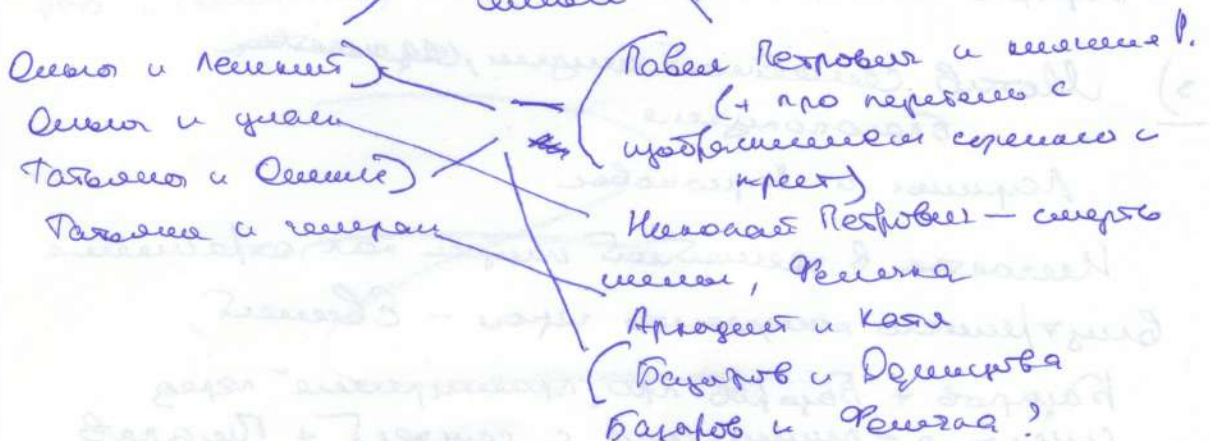 Ольга и Ленский
Ольга и улан
Татьяна и Онегин
Татьяна и генерал
Павел Петрович и княгиня Р.
(+ про перстень с
изображением сфинкса и
крест)
Николай Петрович — смерть
жены, Фенечка
Аркадий и Катя
Базаров и Одинцова
Базаров и Фенечка?